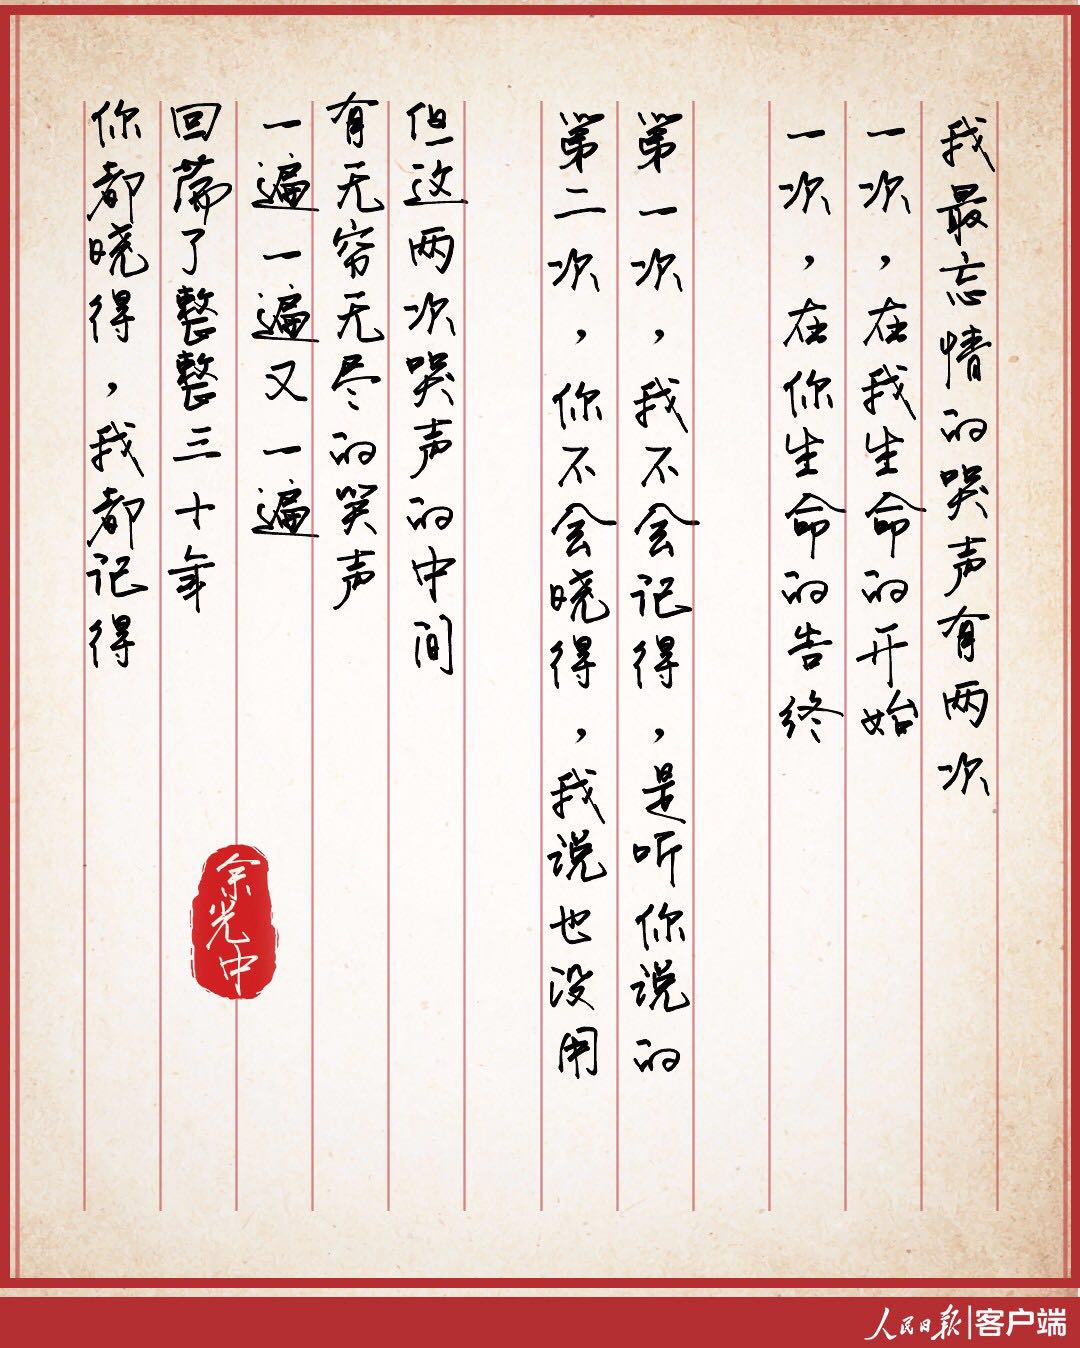 我最忘情的哭声有两次
一次，在我生命的开始
一次，在你生命的告终
第一次，我不会记得，是听你说的
第二次，你不会晓得，我说也没用
但这两次哭声的中间
有无穷无尽的笑声
一遍一遍又一遍
回荡了整整三十年
你都晓得，我都记得
余光中
人民日报|客户端